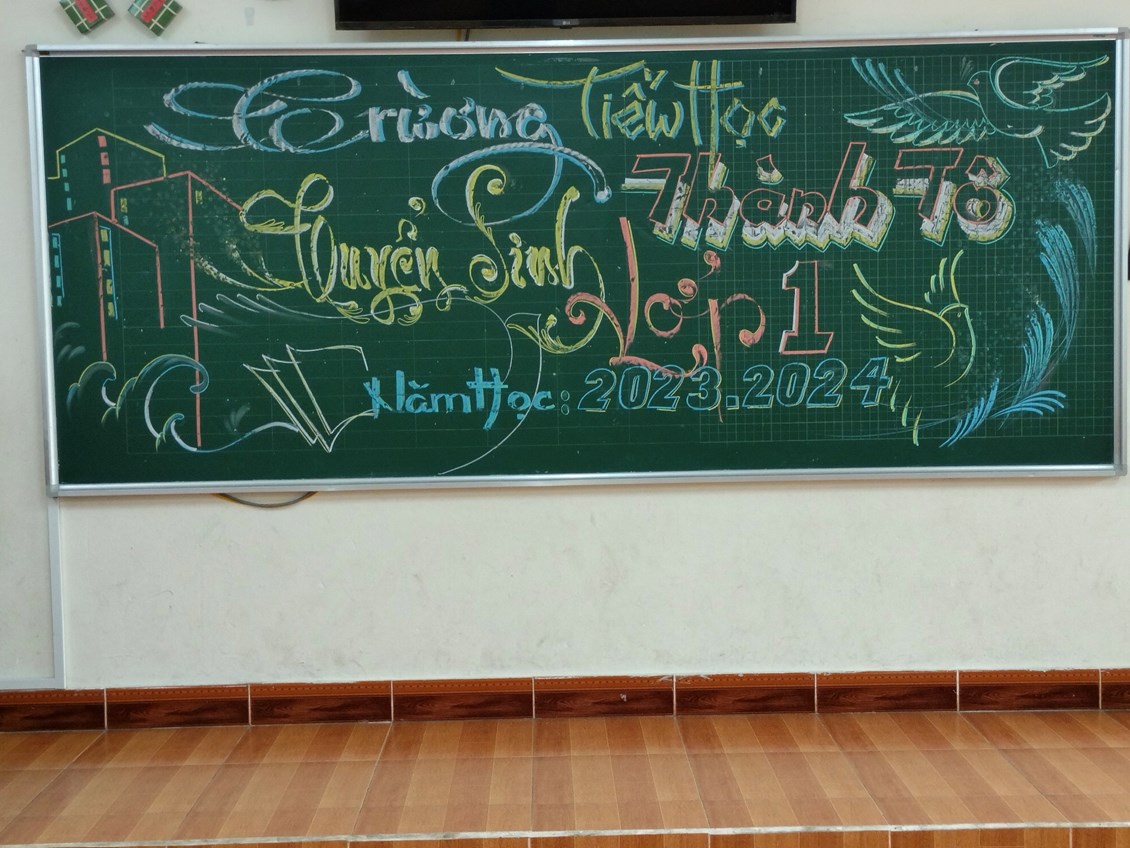 Trường Tiểu Học
Thành Tô
Tuyển Sinh
Lớp 1
Năm Học: 2023.2024